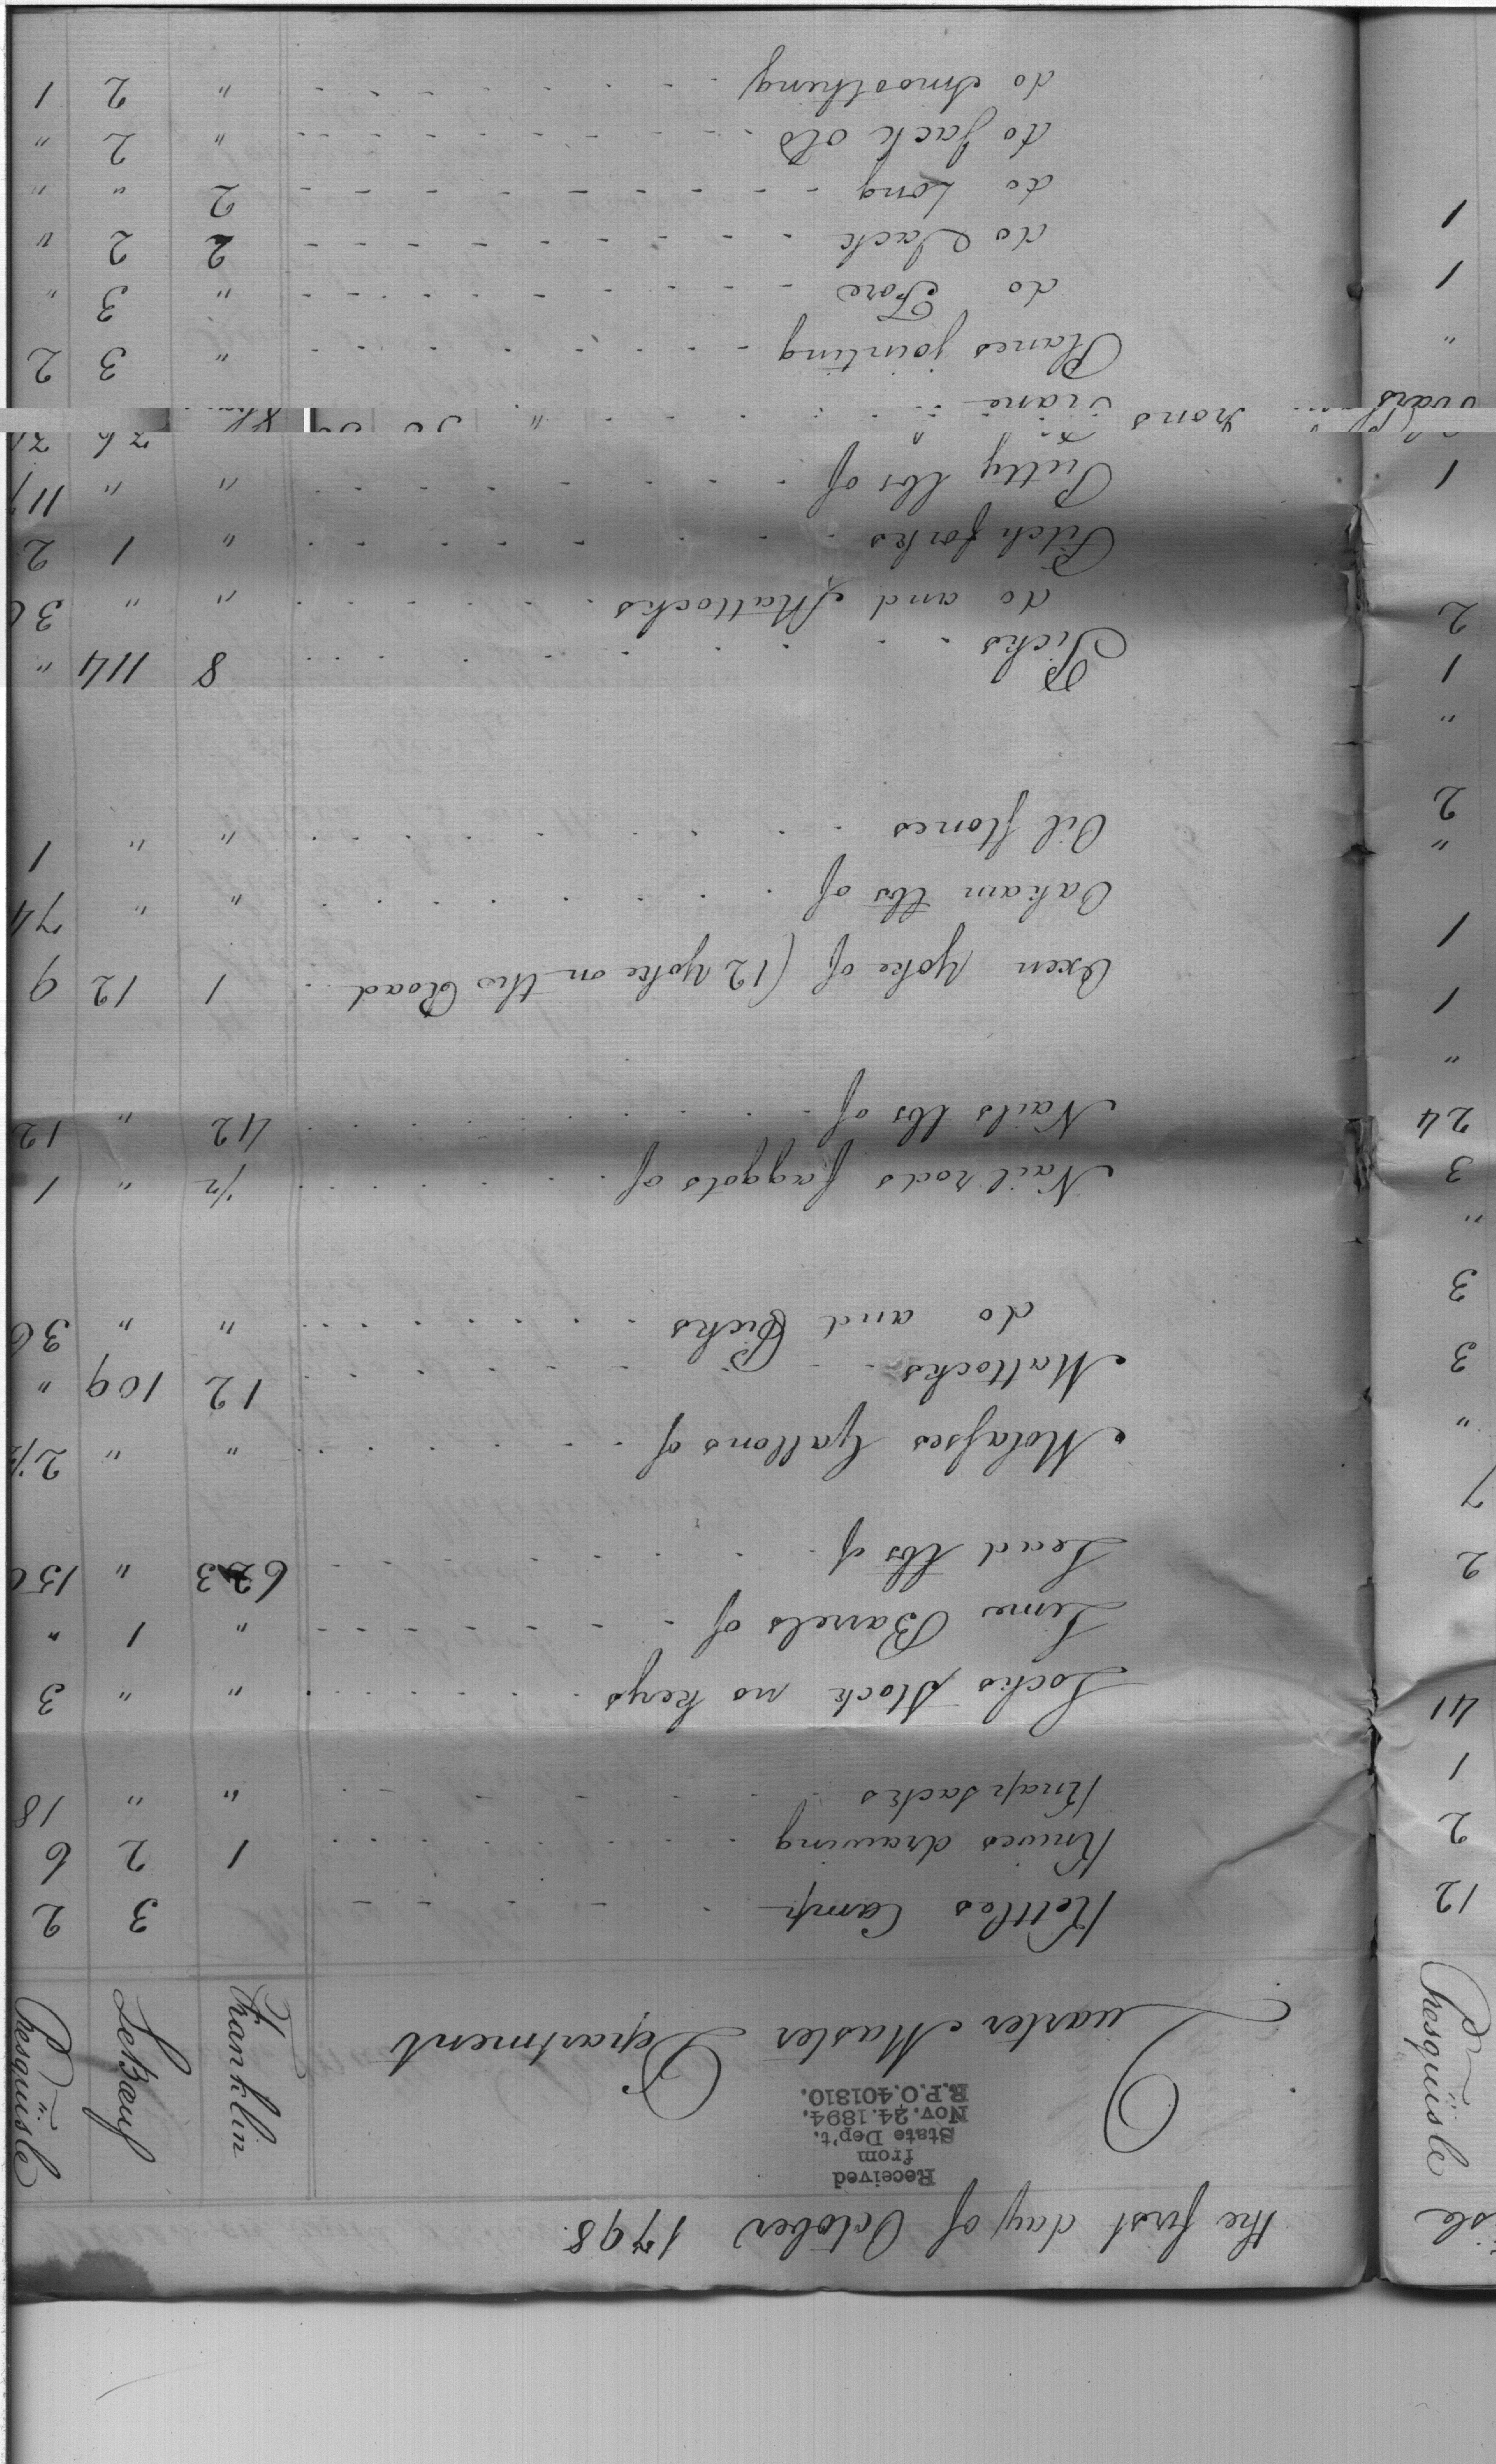 the first day of October 1798.
Received
from
State Dep't.
Nov. 24. 1894.
R.P.O. 401810.
Quarter Master Department Franklin LeBœuf Presqüisle
Kettles Camp 3 2
Knives drawing 1 2 6
Knapsacks " " 18
Locks Stock no keys " " 3
Lime Barrels of " 1 "
Lead lbs of 623 "
Molasses Gallons of " " 2½
Mattocks 12 109 "
do and Picks " " 36
Nail rods faggots of ½ " 1
Nails lbs of 42 " 12
Oxen Yoke of (12 Yoke on the Road 1 12 9
Oakam lbs of " " 74
Oil stones " " 1
Picks 8 114 "
do and Mattocks " "
Pitch forks " 1 2
Putty lbs of " "
Planes jointing " 3 2
do Fore " 3 "
do Jack 2 2 "
do Long 2 " "
do Jack old " 2 "
do Smoothing " 2 1
Presqüisle
12
2
1
41
2
7
"
3
3
"
3
24
"
1
1
"
2
"
1
2
1
"
1
1